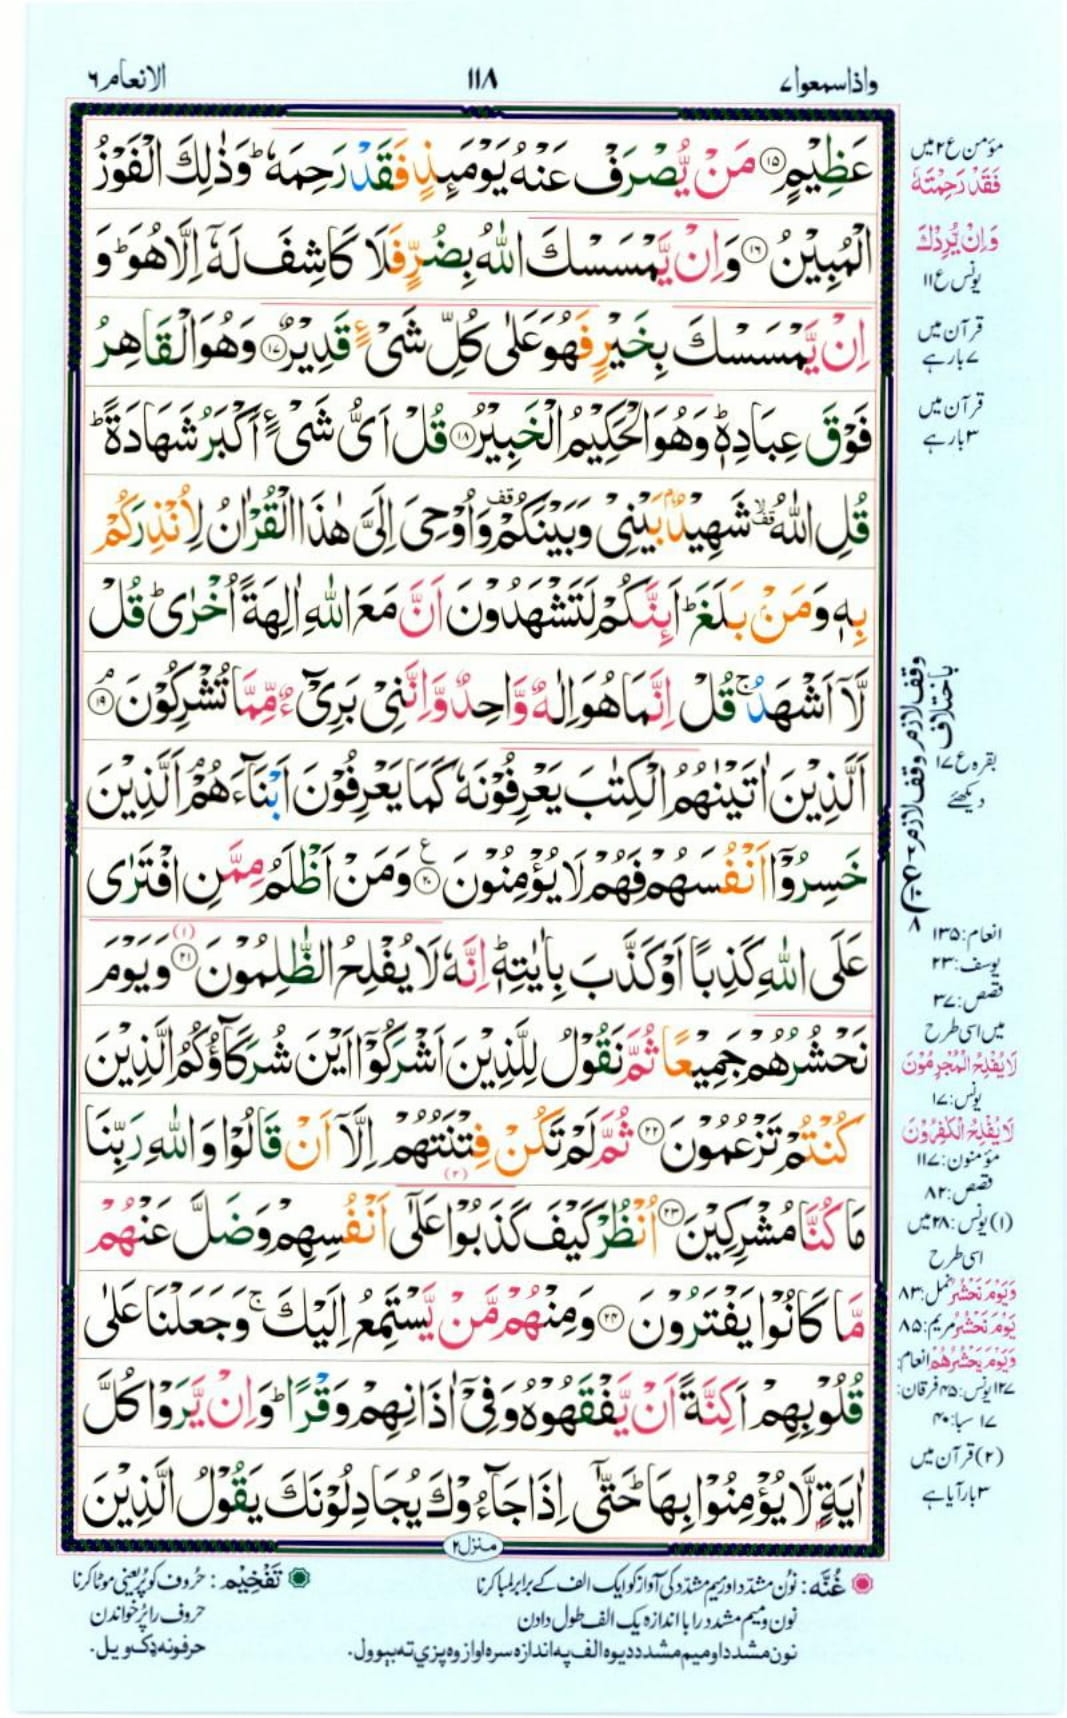 واذاسمعوا۷
۱۱۸
الانعام۶
عَظِيْمٍ ۝۱۵ مَنْ يُّصْرَفْ عَنْهُ يَوْمَئِذٍ فَقَدْ رَحِمَهٗ ؕ وَذٰلِكَ الْفَوْزُ
الْمُبِيْنُ ۝۱۶ وَاِنْ يَّمْسَسْكَ اللّٰهُ بِضُرٍّ فَلَا كَاشِفَ لَهٗۤ اِلَّا هُوَ ؕ وَ
اِنْ يَّمْسَسْكَ بِخَيْرٍ فَهُوَ عَلٰى كُلِّ شَىْءٍ قَدِيْرٌ ۝۱۷ وَهُوَ الْقَاهِرُ
فَوْقَ عِبَادِهٖ ؕ وَهُوَ الْحَكِيْمُ الْخَبِيْرُ ۝۱۸ قُلْ اَىُّ شَىْءٍ اَكْبَرُ شَهَادَةً ؕ
قُلِ اللّٰهُ شَهِيْدٌۢ بَيْنِىْ وَبَيْنَكُمْ وَاُوْحِىَ اِلَىَّ هٰذَا الْقُرْاٰنُ لِاُنْذِرَكُمْ
بِهٖ وَمَنْۢ بَلَغَ ؕ اَئِنَّكُمْ لَتَشْهَدُوْنَ اَنَّ مَعَ اللّٰهِ اٰلِهَةً اُخْرٰى ؕ قُلْ
لَّاۤ اَشْهَدُ ۚ قُلْ اِنَّمَا هُوَ اِلٰهٌ وَّاحِدٌ وَّاِنَّنِىْ بَرِىْٓءٌ مِّمَّا تُشْرِكُوْنَ ۝۱۹
اَلَّذِيْنَ اٰتَيْنٰهُمُ الْكِتٰبَ يَعْرِفُوْنَهٗ كَمَا يَعْرِفُوْنَ اَبْنَآءَهُمْ اَلَّذِيْنَ
خَسِرُوْۤا اَنْفُسَهُمْ فَهُمْ لَا يُؤْمِنُوْنَ ۝۲۰ وَمَنْ اَظْلَمُ مِمَّنِ افْتَرٰى
عَلَى اللّٰهِ كَذِبًا اَوْ كَذَّبَ بِاٰيٰتِهٖ ؕ اِنَّهٗ لَا يُفْلِحُ الظّٰلِمُوْنَ ۝۲۱ (۱) وَيَوْمَ
نَحْشُرُهُمْ جَمِيْعًا ثُمَّ نَقُوْلُ لِلَّذِيْنَ اَشْرَكُوْۤا اَيْنَ شُرَكَآؤُكُمُ الَّذِيْنَ
كُنْتُمْ تَزْعُمُوْنَ ۝۲۲ ثُمَّ لَمْ تَكُنْ فِتْنَتُهُمْ اِلَّاۤ اَنْ قَالُوْا وَاللّٰهِ رَبِّنَا
مَا كُنَّا مُشْرِكِيْنَ ۝۲۳ اُنْظُرْ كَيْفَ كَذَبُوْا عَلٰٓى اَنْفُسِهِمْ وَضَلَّ عَنْهُمْ
مَّا كَانُوْا يَفْتَرُوْنَ ۝۲۴ وَمِنْهُمْ مَّنْ يَّسْتَمِعُ اِلَيْكَ ۚ وَجَعَلْنَا عَلٰى
قُلُوْبِهِمْ اَكِنَّةً اَنْ يَّفْقَهُوْهُ وَفِىْۤ اٰذَانِهِمْ وَقْرًا ؕ وَاِنْ يَّرَوْا كُلَّ
اٰيَةٍ لَّا يُؤْمِنُوْا بِهَا ؕ حَتّٰۤى اِذَا جَآءُوْكَ يُجَادِلُوْنَكَ يَقُوْلُ الَّذِيْنَ
منزل۲
مؤمن ع۲ میں
فَقَدْ رَحِمْتَهٗ
وَاِنْ يُّرِدْكَ
یونس ع۱۱
قرآن میں
۷بار ہے
قرآن میں
۳بار ہے
وقف لازم
باختلاف
وقف لازم
بقرہ ع۱۷
دیکھئے
انعام:۱۳۵
یوسف:۲۳
قصص:۳۷
میں اسی طرح
لَا يُفْلِحُ الْمُجْرِمُوْنَ
یونس:۱۷
لَا يُفْلِحُ الْكٰفِرُوْنَ
مؤمنون:۱۱۷
قصص:۸۲
(۱) یونس:۲۸میں
اسی طرح
وَيَوْمَ نَحْشُرُ نمل:۸۳
يَوْمَ نَحْشُرُ مریم:۸۵
وَيَوْمَ يَحْشُرُهُمْ انعام:
۱۲۷ یونس:۴۵ فرقان:
۱۷ سبا:۴۰
(۲) قرآن میں
۳بار آیا ہے
غُنَّه : نون مشدّد اور میم مشدّد کی آواز کو ایک الف کے برابر لمبا کرنا
نون ومیم مشدد را با اندازہ یک الف طول دادن
نون مشدد او میم مشدد ديوه الف په اندازه سره اواز وه پزې ته بېوول.
تَفْخِيْم : حُروف کو پُر یعنی موٹا کرنا
حروف را پُر خواندن
حرفونه ډک ویل.